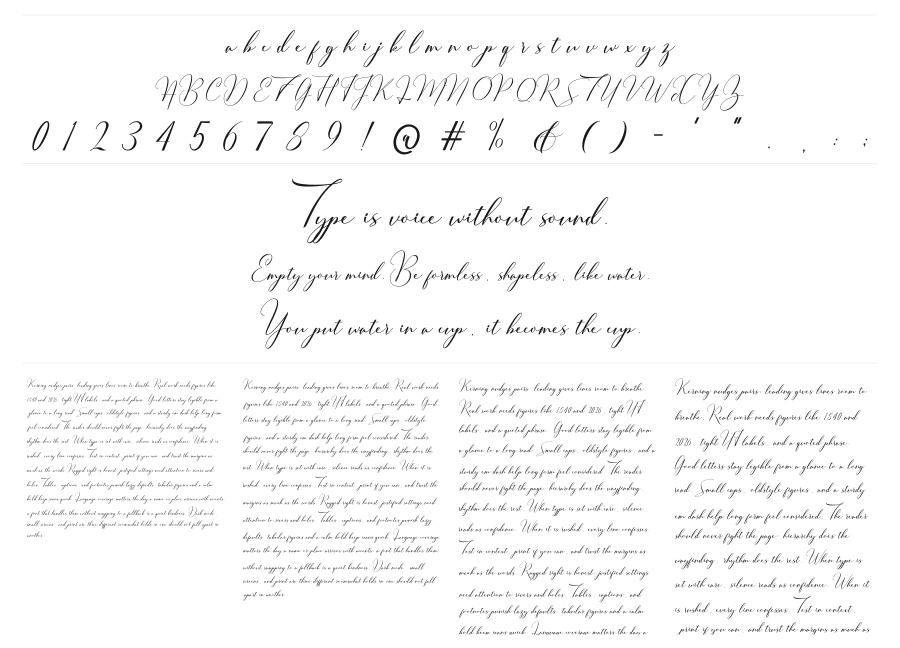 a b c d e f g h i j k l m n o p q r s t u v w x y z
A B C D E F G H I J K L M N O P Q R S T U V W X Y Z
0 1 2 3 4 5 6 7 8 9 ! @ # % & ( ) - ' " . , : ;
Type is voice without sound.
Empty your mind. Be formless, shapeless, like water.
You put water in a cup, it becomes the cup.
Kerning nudges pairs, leading gives lines room to breathe. Real work needs figures like
1540 and 2026, tight UI labels, and a quoted phrase. Good letters stay legible from a
glance to a long read. Small caps, oldstyle figures, and a sturdy em dash help long form
feel considered. The reader should never fight the page, hierarchy does the wayfinding,
rhythm does the rest. When type is set with care, silence reads as confidence. When it is
rushed, every line confesses. Test in context, print if you can, and trust the margins as
much as the words. Ragged right is honest, justified settings need attention to rivers and
holes. Tables, captions, and footnotes punish lazy defaults, tabular figures and a calm
bold keep sums quick. Language coverage matters the day a name or place arrives with accents,
a font that handles them without swapping to a fallback is a quiet kindness. Dark mode, small
screens, and print use three different inks what holds in one should not fall apart in
another.
Kerning nudges pairs, leading gives lines room to breathe. Real work needs
figures like 1540 and 2026, tight UI labels, and a quoted phrase. Good
letters stay legible from a glance to a long read. Small caps, oldstyle
figures, and a sturdy em dash help long form feel considered. The reader
should never fight the page, hierarchy does the wayfinding, rhythm does the
rest. When type is set with care, silence reads as confidence. When it is
rushed, every line confesses. Test in context, print if you can, and trust the
margins as much as the words. Ragged right is honest, justified settings need
attention to rivers and holes. Tables, captions, and footnotes punish lazy
defaults, tabular figures and a calm bold keep sums quick. Language coverage
matters the day a name or place arrives with accents, a font that handles them
without swapping to a fallback is a quiet kindness. Dark mode, small
screens, and print use three different
should not fall
apart in another.
Kerning nudges pairs, leading gives lines room to breathe.
Real work needs figures like 1540 and 2026, tight UI
labels, and a quoted phrase. Good letters stay legible from
a glance to a long read. Small caps, oldstyle figures, and a
sturdy em dash help long form feel considered. The reader
should never fight the page, hierarchy does the wayfinding,
rhythm does the rest. When type is set with care, silence
reads as confidence. When it is rushed, every line confesses.
Test in context, print if you can, and trust the margins as
much as the words. Ragged right is honest, justified settings
need attention to rivers and holes. Tables, captions, and
footnotes punish lazy defaults, tabular figures and a calm
bold keep sums quick. Language coverage matters the day a
Kerning nudges pairs, leading gives lines room to
breathe. Real work needs figures like 1540 and
2026, tight UI labels, and a quoted phrase.
Good letters stay legible from a glance to a long
read. Small caps, oldstyle figures, and a sturdy
em dash help long form feel considered. The reader
should never fight the page, hierarchy does the
wayfinding, rhythm does the rest. When type is
set with care, silence reads as confidence. When it
is rushed, every line confesses. Test in context,
print if you can, and trust the margins as much as